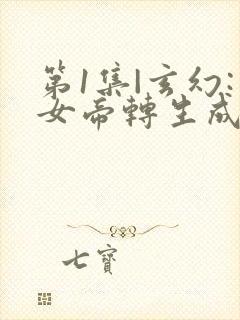 第1集|玄幻:
女帝轉生成
七寶